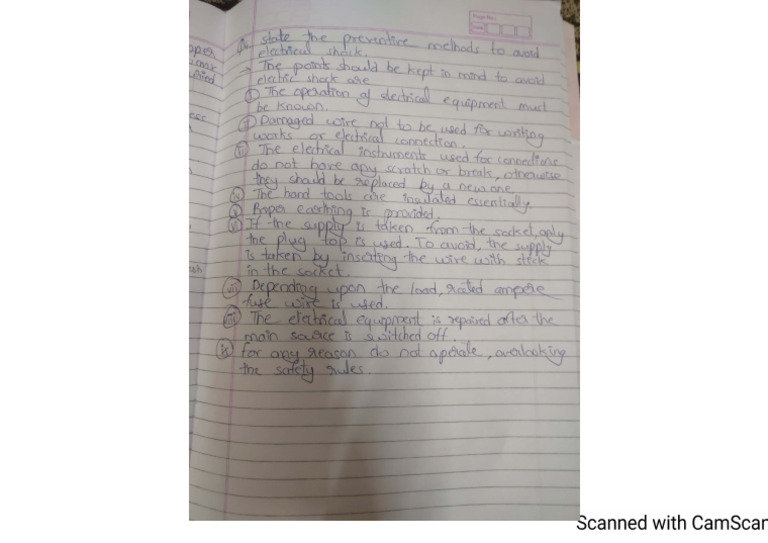 Page No.
Date
Q. State the preventive methods to avoid
electrical shock.
→ The points should be kept in mind to avoid
electric shock are
(i) The operation of electrical equipment must
be known.
(ii) Damaged wire not to be used for working
works or electrical connection.
(iii) The electrical instruments used for connections
do not have any scratch or break, otherwise
they should be replaced by a new one.
(iv) The hand tools are insulated essentially.
(v) Proper earthing is provided.
(vi) If the supply is taken from the socket, only
the plug top is used. To avoid, the supply
is taken by inserting the wire with stick
in the socket.
(vii) Depending upon the load, rated ampere
fuse wire is used.
(viii) The electrical equipment is repaired after the
main source is switched off.
(ix) for any reason do not operate, overlooking
the safety rules.
Scanned with CamScan